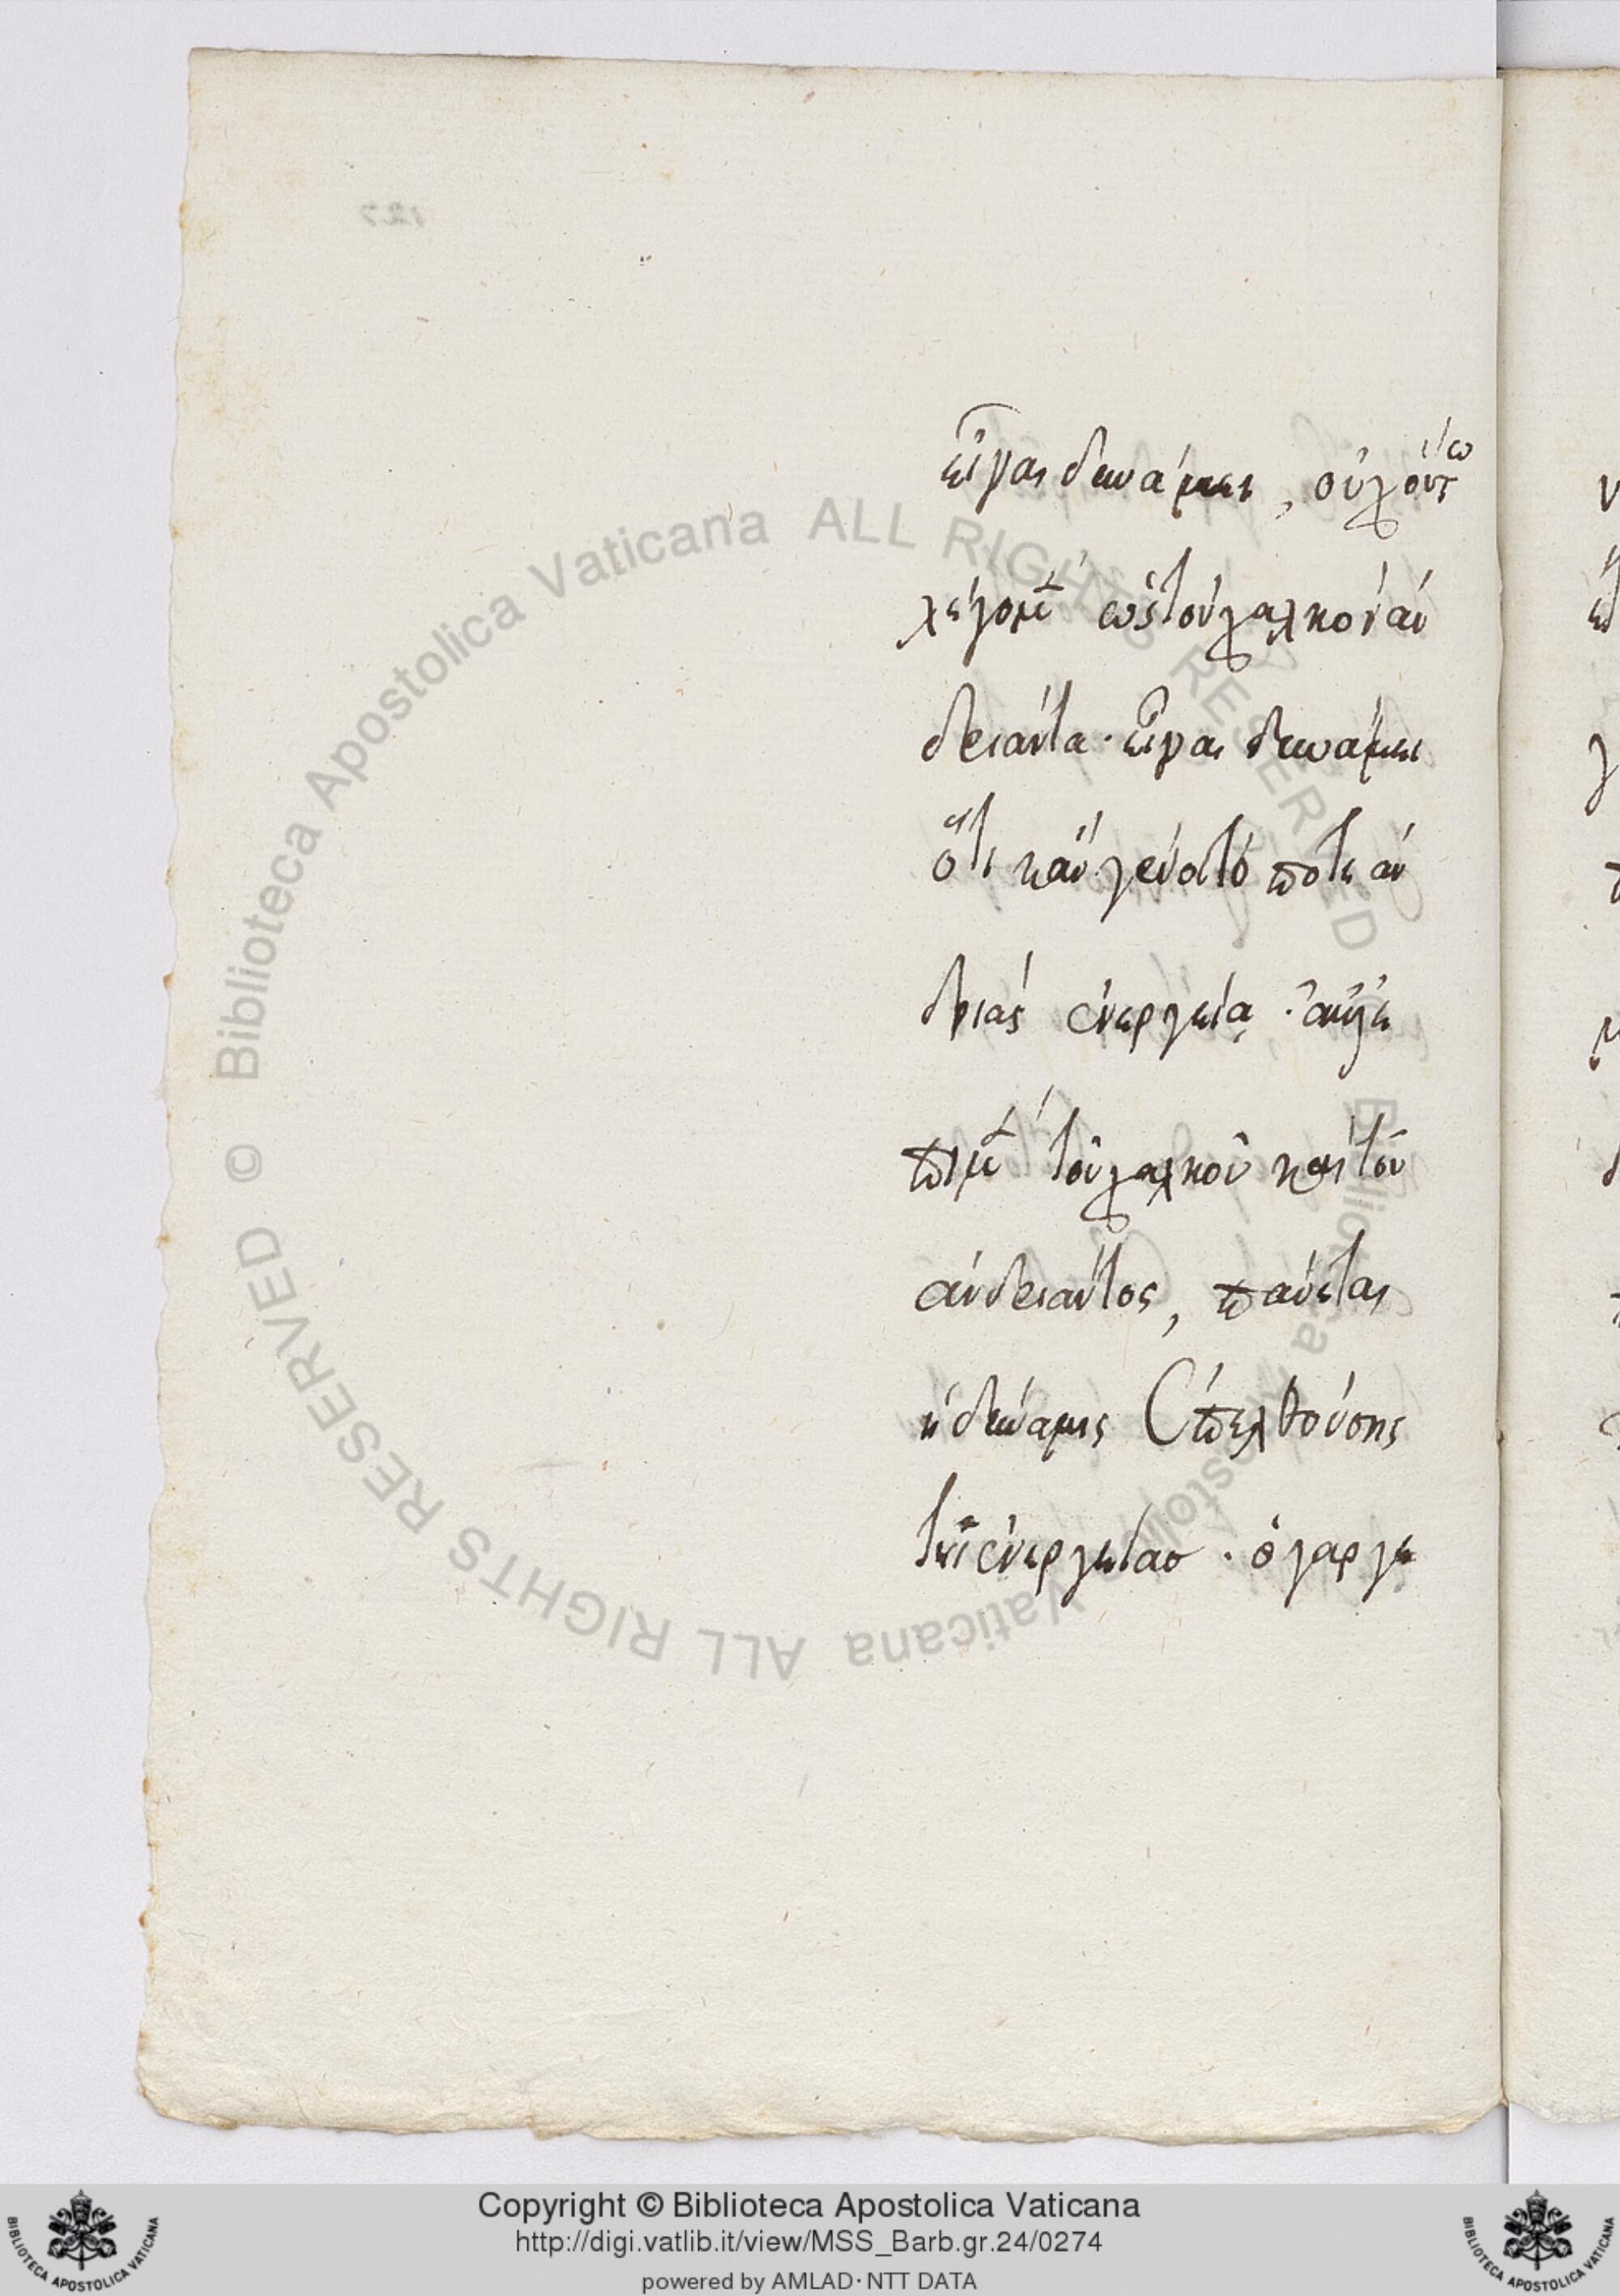 εἶναι δυνάμει, οὐχ οὕτω
λέγομεν ὡς τὸν χαλκὸν ἀν
δριάντα. εἶναι δυνάμει
ὅτι κἂν γένοιτό ποτε ἀν
δριὰς ἐνεργείᾳ.
τοῦ χαλκοῦ καὶ τοῦ
ἀνδριάντος, παύεται
ἡ δύναμις ἐπελθούσης
τῆς ἐνεργείας. ὁ γὰρ γε
Biblioteca Apostolica Vaticana ALL RIGHTS RESERVED ©
Biblioteca Apostolica Vaticana ALL RIGHTS RESERVED ©
Copyright © Biblioteca Apostolica Vaticana
http://digi.vatlib.it/view/MSS_Barb.gr.24/0274
powered by AMLAD·NTT DATA
BIBLIOTECA APOSTOLICA VATICANA
BIBLIOTECA APOSTOLICA VATICANA